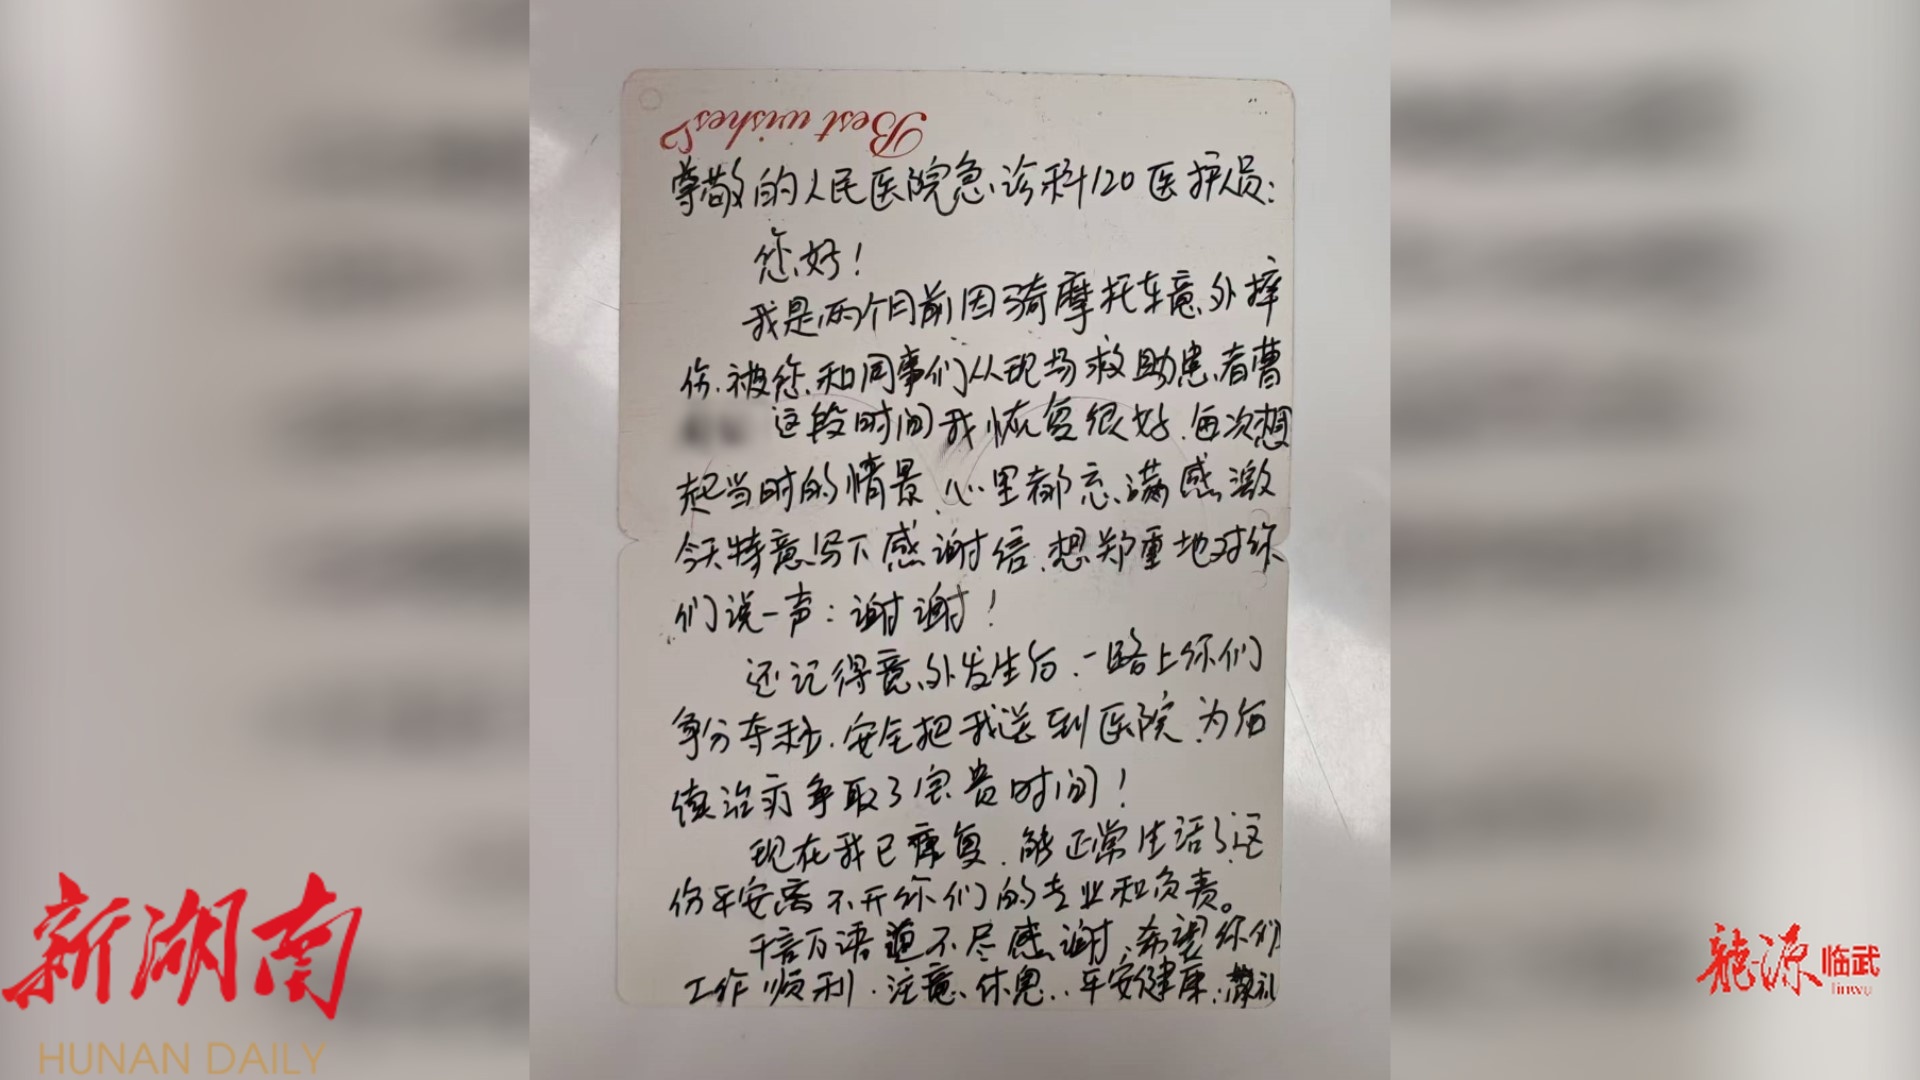 Best wishes
尊敬的人民医院急诊科120医护人员：
您好！
我是两个月前因骑摩托车意外摔
伤，被您和同事们从现场救助患者曹
这段时间我恢复很好，每次想
起当时的情景，心里都充满感激
今天特意写下感谢信，想郑重地对你
们说一声：谢谢！
还记得意外发生后，一路上你们
争分夺秒，安全把我送到医院，为后
续治疗争取了宝贵时间！
现在我已康复，能正常生活了，这
份平安离不开你们的专业和负责。
千言万语道不尽感谢，希望你们
工作顺利，注意休息，平安健康，敬礼
新湖南
HUNAN DAILY
龍源临武
linwu